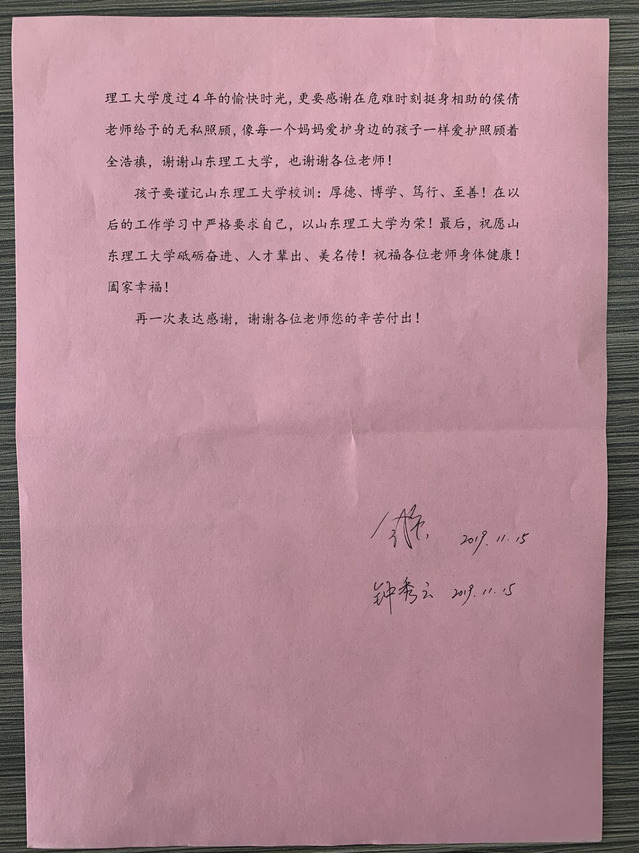 理工大学度过4年的愉快时光，更要感谢在危难时刻挺身相助的侯倩
老师给予的无私照顾，像每一个妈妈爱护身边的孩子一样爱护照顾着
全浩禛，谢谢山东理工大学，也谢谢各位老师！
孩子要谨记山东理工大学校训：厚德、博学、笃行、至善！在以
后的工作学习中严格要求自己，以山东理工大学为荣！最后，祝愿山
东理工大学砥砺奋进、人才辈出、美名传！祝福各位老师身体健康！
阖家幸福！
再一次表达感谢，谢谢各位老师您的辛苦付出！
2019.11.15
钟秀云 2019.11.15